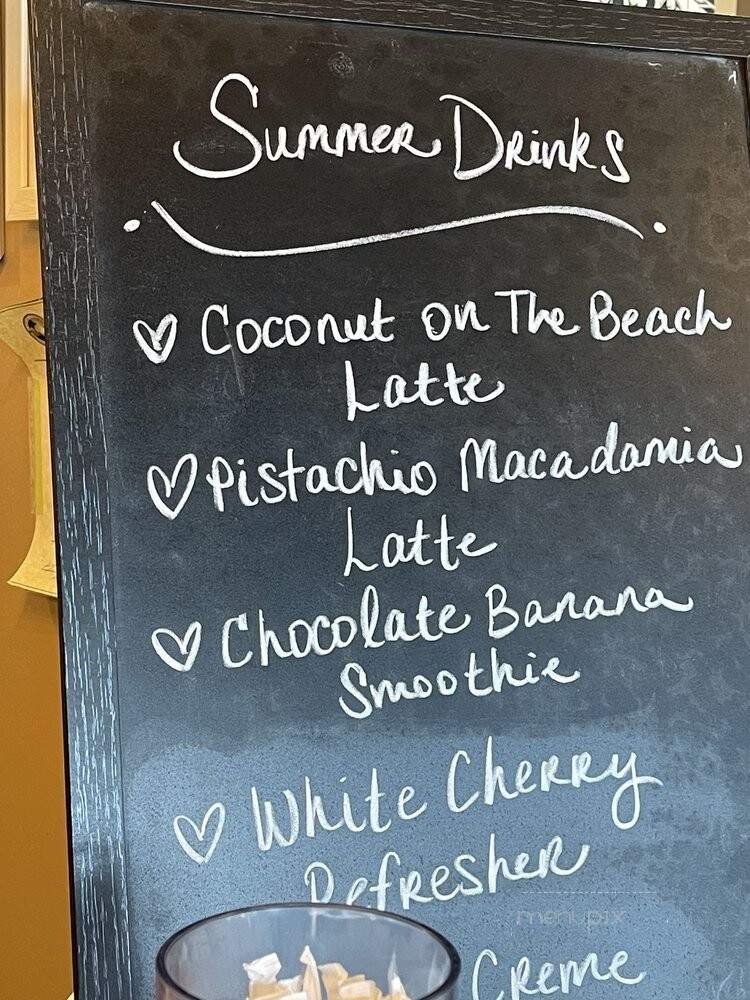 Summer Drinks
Coconut on The Beach
Latte
Pistachio Macadamia
Latte
Chocolate Banana
Smoothie
White Cherry
Refresher
Creme
menupix